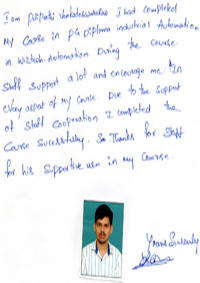 I am Pulipati Venkateswarlu I had completed
My Course in PG diploma industrial Automation
in Wiztech Automation During the course.
Staff support a lot and encourage me. In
every aspect of my Course. Due to the Support
of Staff Cooperation I completed the
Course Sucessfully. So Thanks for Staff
for his Supportive in my Course.
Yours Sincerely